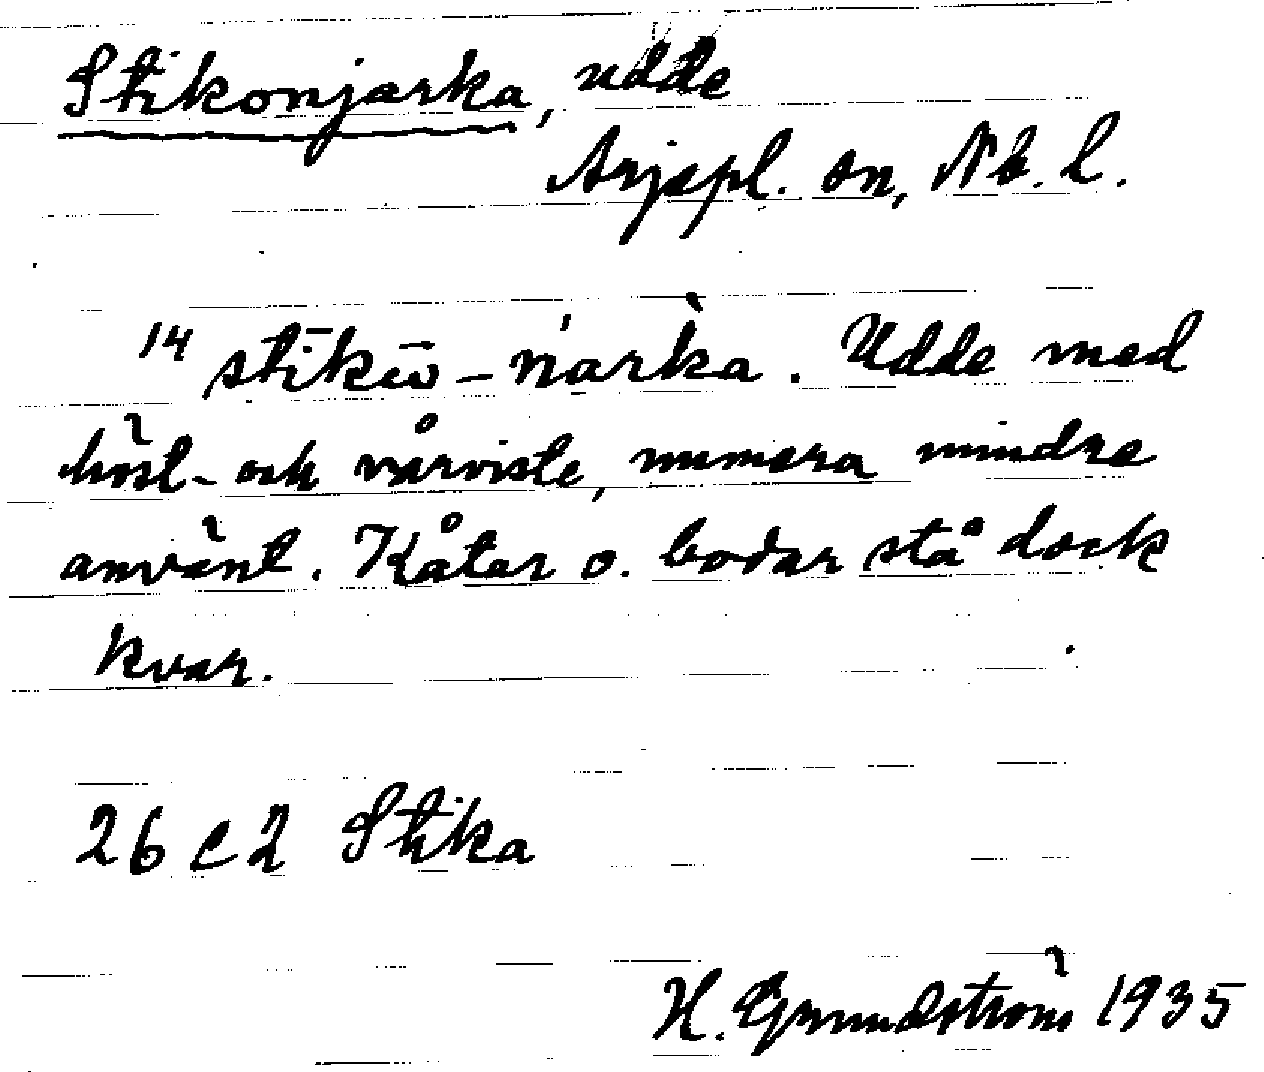 Stikonjarka, udde
Arjepl. sn, Nb. l.
14 stīkēū-ńàrka. Udde med
höst- och vårviste, numera mindre
använt. Kåtar o. bodar stå dock
kvar.
26 c 2 Stika
H. Grundström 1935